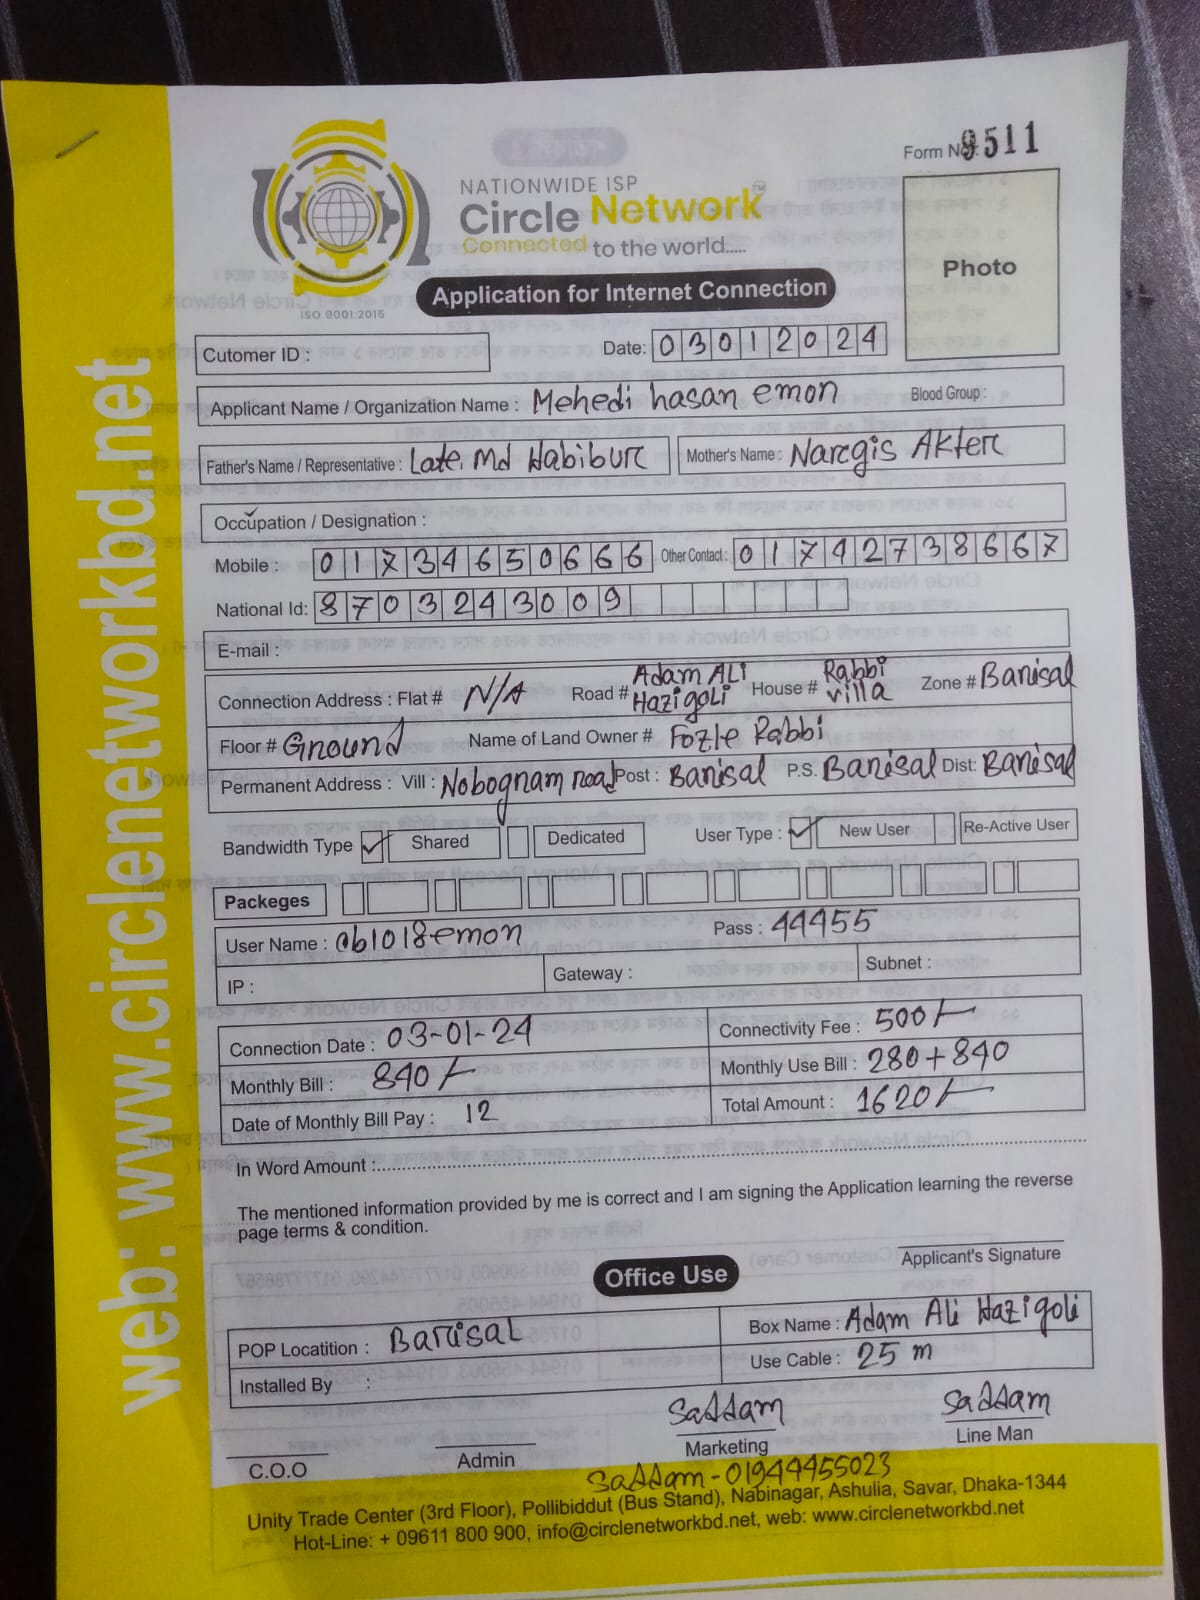 web: www.circlenetworkbd.net
Form No. 9511
NATIONWIDE ISP
Circle Network™
Connected to the world.....
ISO 9001:2015
Application for Internet Connection
Photo
Cutomer ID :
Date: 03012024
Applicant Name / Organization Name : Mehedi hasan emon Blood Group :
Father's Name / Representative : Late. Md Habibur Mother's Name : Nargis Akter
Occupation / Designation :
Mobile : 01734650666 Other Contact : 01742738667
National Id: 8703243009
E-mail :
Connection Address : Flat # N/A Road # Adam ALi Hazigoli House # Rabbi villa Zone # Barisal
Floor # Ground Name of Land Owner # Fozle Rabbi
Permanent Address : Vill : Nobogram road Post : Barisal P.S. Barisal Dist: Barisal
Bandwidth Type ✓ Shared Dedicated User Type : ✓ New User Re-Active User
Packeges
User Name : cb1018emon Pass : 44455
IP : Gateway : Subnet :
Connection Date : 03-01-24 Connectivity Fee : 500/-
Monthly Bill : 840/- Monthly Use Bill : 280+840
Date of Monthly Bill Pay : 12 Total Amount : 1620/-
In Word Amount :
The mentioned information provided by me is correct and I am signing the Application learning the reverse
page terms & condition.
Applicant's Signature
Office Use
POP Locatition : Barisal Box Name : Adam Ali Hazigoli
Installed By : Use Cable : 25 m
Saddam Saddam
C.O.O Admin Marketing Line Man
Saddam - 01944455023
Unity Trade Center (3rd Floor), Pollibiddut (Bus Stand), Nabinagar, Ashulia, Savar, Dhaka-1344
Hot-Line: + 09611 800 900, info@circlenetworkbd.net, web: www.circlenetworkbd.net